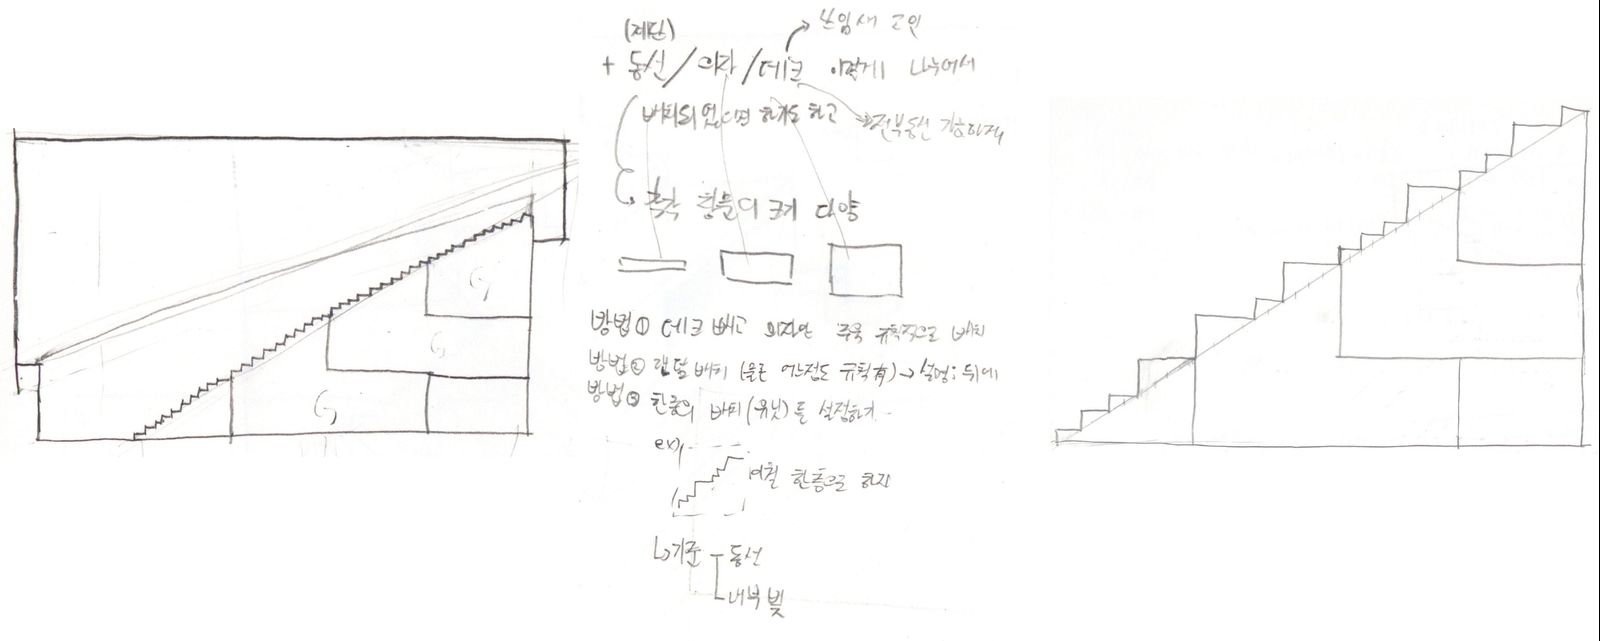 (계단)
+ 동선/의자/데크 이렇게 나누어서
쓰임새 고민
배치되 있으면 하기도 하고
전부동선 가능하게
각 힘들이 크기 다양
방법① 데크 빼고 의자만 쭈욱 규칙적으로 배치
방법② 랜덤 배치 (물론 어느정도 규칙有) → 설명: 뒤에
방법③ 한층의 배치(유닛)를 설정하기
ex)
이걸 한층으로 하자
↳기준 동선
내부 빛
G
G
G